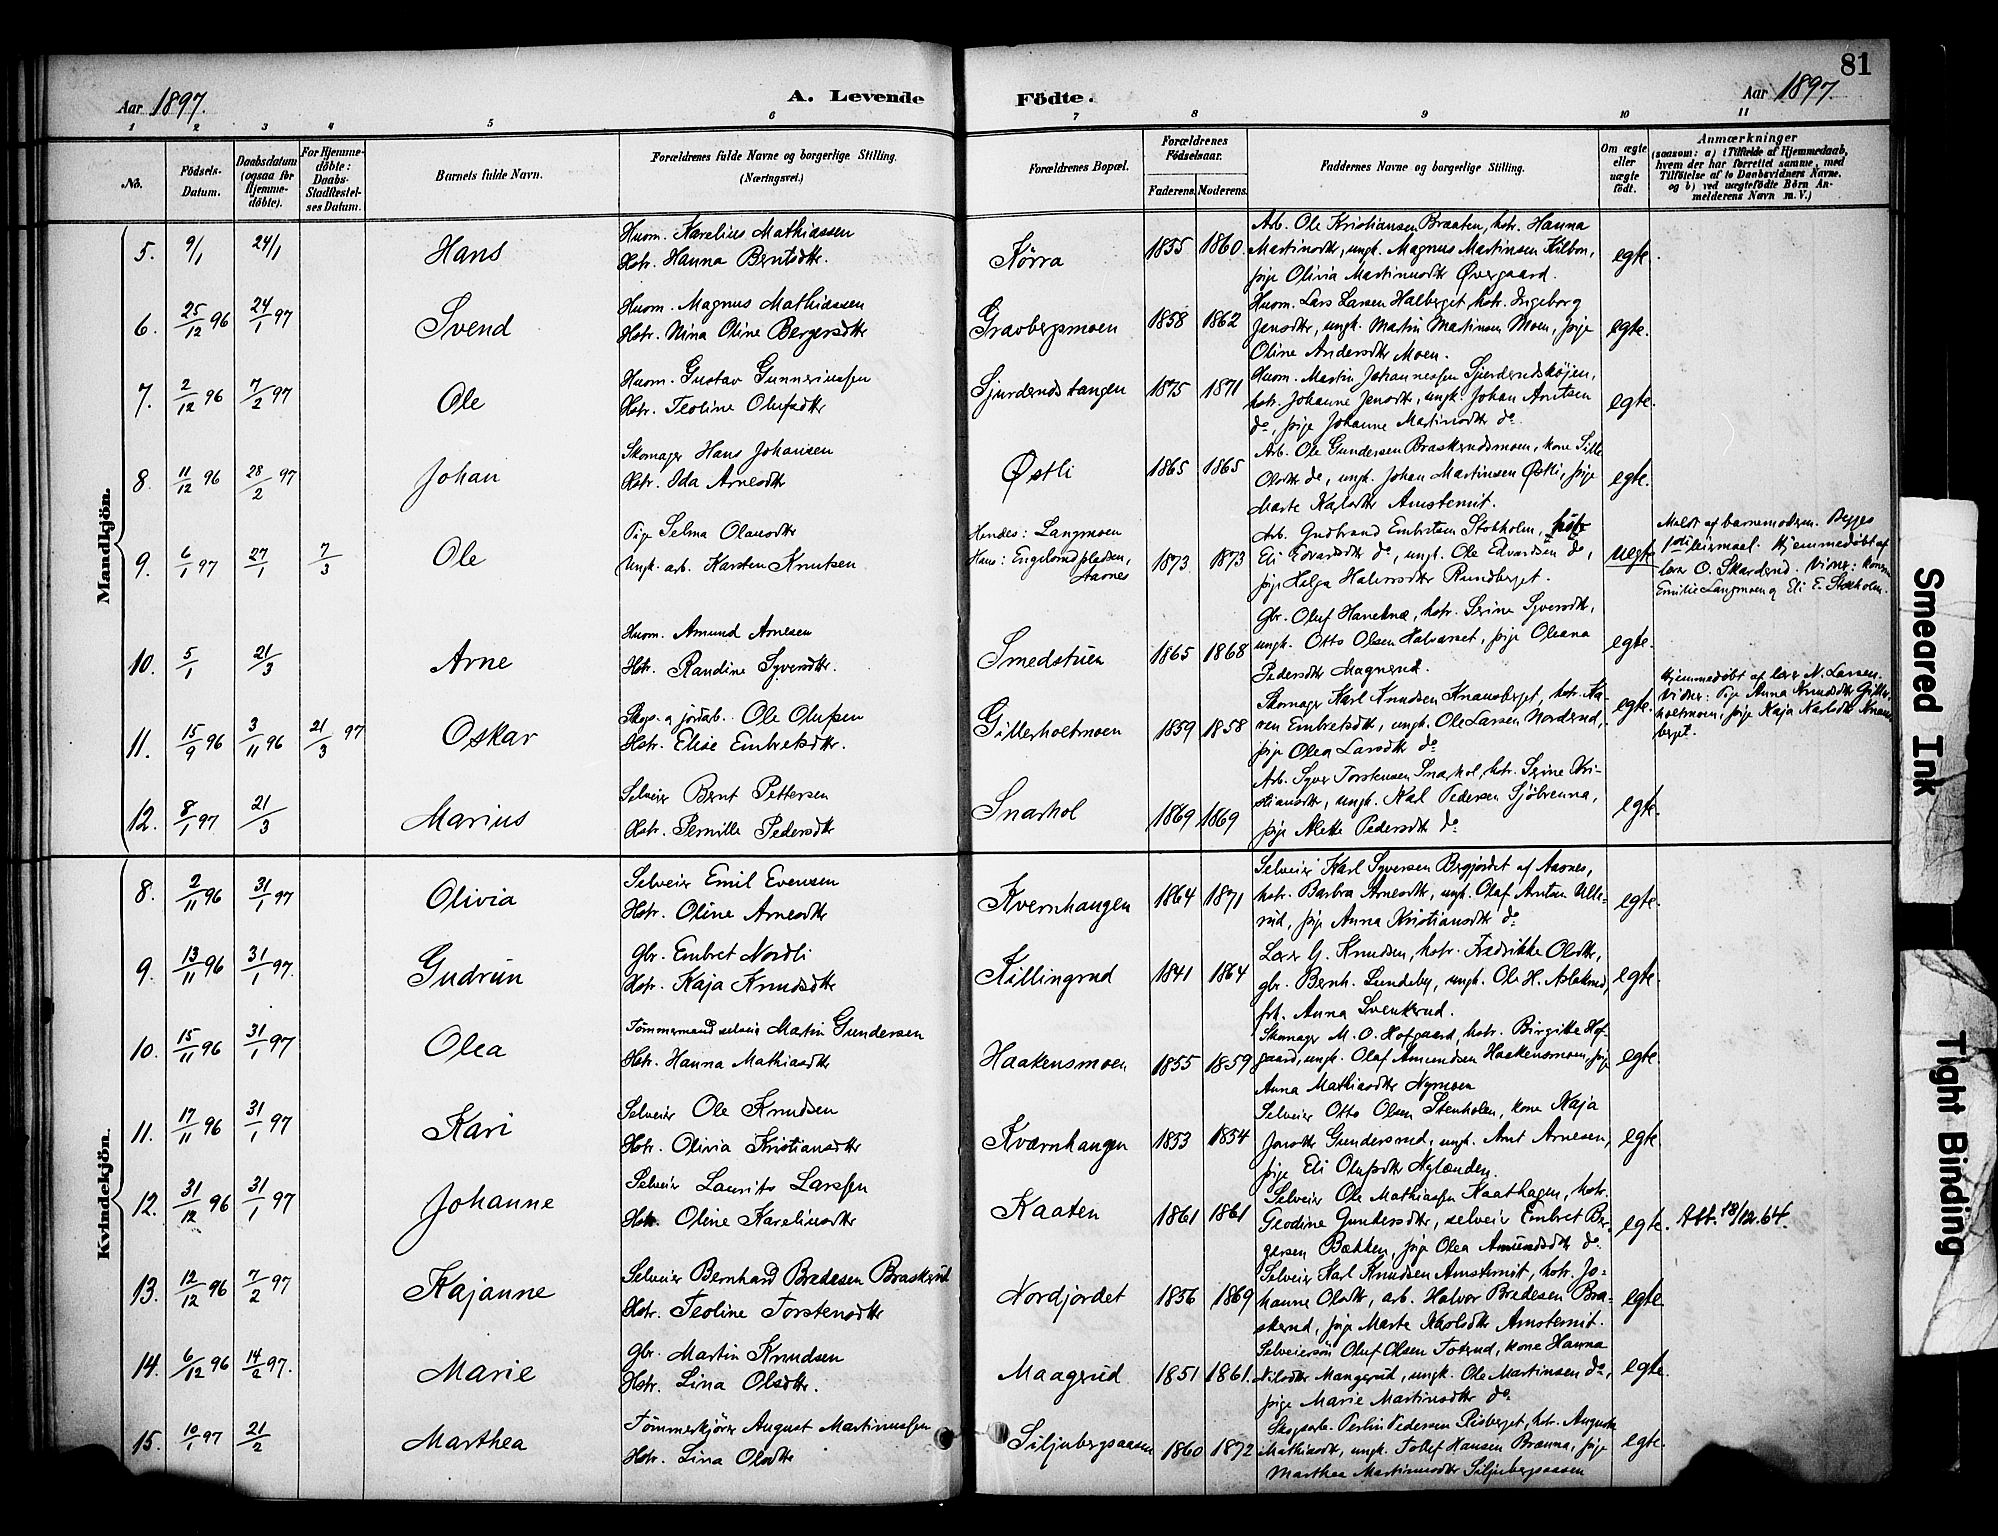 81
Aar 1897.
A. Levende Födte.
Aar 1897
1 2 3 4 5 6 7 8 9 10 11
No.
Födsels-Datum.
Daabsdatum (ogsaa for Hjemme-döbte).
For Hjemme-döbte: Daabs-Stadfæstel-ses Datum.
Barnets fulde Navn.
Forældrenes fulde Navne og borgerlige Stilling. (Næringsvei.)
Forældrenes Bopæl.
Forældrenes Födselsaar.
Faderens. Moderens.
Faddernes Navne og borgerlige Stilling.
Om ægte eller uægte födt.
Anmærkninger
(saasom: a) i Tilfælde af Hjemmedaab, hvem der har forrettet samme, med Tilföielse af to Daabsvidners Navne. og b) ved uægtefödte Börn An-melderens Navn m. V.)
Mandkjön.
5. 9/1 24/1 Hans
Huom. Karelius Mathiassen
Hstr. Hanna Berntsdtr.
Kørra 1855 1860.
Arb. Ole Kristiansen Braaten, hstr. Hanna
Martinsdtr, ungk. Magnus Martinsen Kilbon,
pige Olivia Martinusdtr Øvergaard.
egte.
6. 25/12 96 24/1 97 Svend
Huom. Magnus Mathiassen
Hstr. Nina Oline Bergersdtr
Gravbergsmoen 1858 1862
Huom. Lars Larsen Halberget hstr. Ingeborg
Jensdtr, ungk. Martin Martinsen Moen, pige
Oline Andersdtr Moen.
egte.
7. 2/12 96 7/2 97 Ole
Huom. Gustav Gunneriussen
Hstr. Teoline Olufsdtr
Sjurderudstangen 1875 1871
Huom. Martin Johannessen Sjurderudshøjen,
hstr. Johanne Jensdtr, ungk. Johan Arntsen
do, pige Johanne Martinsdtr do.
egte.
8. 11/12 96 28/2 97 Johan
Skomager Hans Johansen
Hstr. Ida Arnesdtr
Østli 1865 1865
Arb. Ole Gundersen Braskerudsmoen, kone Sille
Olsdtr do, ungk. Johan Martinsen Østli, pige
Marte Karlsdtr Amsternit.
egte.
9. 6/1 97 27/1 7/3 Ole
Pige Selma Olausdtr
Ungk. arb. Karsten Knutsen
Hendes: Langmoen
Hans: Engelundpladsen,
Aasnes
1873 1873
Arb. Gudbrand Embretsen Stokholm, hstr
Eli Edvardsdtr do, ungk. Ole Edvardsen do,
pige Helga Halvorsdtr Rundberget.
uegte
Meldt af barnemoderen. Begges
1ste leiermaal. Hjemmedøbt af
lærer O. Skarderud. Vidner: konerne
Emilie Langmoen og Eli E. Stokholm.
10. 5/1 21/3 Arne
Huom. Amund Arnesen
Hstr. Randine Syversdtr.
Smedstuen 1865 1868
Gbr. Oluf Haneknæ, hstr. Serine Syversdtr,
ungk. Otto Olsen Halvorset, pige Oleana
Pedersdtr Magnerud.
egte.
11. 15/9 96 3/11 96 21/3 97 Oskar
Skogs- og jordarb. Ole Olufsen
Hstr. Elise Embretsdtr.
Gillerholtmoen 1859 1858
Skomager Karl Knudsen Knausberget, hstr. Ka-
ren Embretsdtr, ungk. Ole Larsen Norderud,
pige Olea Larsdtr do
egte.
Hjemmedøbt af lærer N. Larsen.
Vidner: Pige Anna Knudsdtr Giller-
holtmoen, pige Kaja Karlsdtr Knaus-
berget.
12. 8/1 97 21/3 Marius
Selveier Bernt Pettersen
Hstr. Pernille Pedersdtr
Snarhol 1869 1869
Arb. Syver Torstensen Snarhol, hstr. Serine Kri-
stiansdtr, ungk. Karl Pedersen Sjøbrenna,
pige Alette Pedersdtr do
egte.
Kvindekjön.
8. 2/11 96 31/1 97 Olivia
Selveier Emil Evensen
Hstr. Oline Arnesdtr
Kvernhaugen 1864 1871
Selveier Karl Syversen Bergjordet af Aasnes,
hstr. Barbra Arnesdtr, ungk. Olaf Antsen Ulle-
rud, pige Anna Kristiansdtr do
egte.
9. 13/11 96 31/1 97. Gudrun
Gbr. Embret Nordli
Hstr. Kaja Knudsdtr
Killingrud 1841 1864
Lærer G. Knudsen, hstr. Fredrikke Olsdtr,
gbr. Bernh. Lundeby, ungk. Ole H. Aslakrud,
frk. Anna Svenkerud.
egte.
10. 15/11 96 31/1 97 Olea
Tømmermand selveier Martin Gundersen
Hstr. Hanna Mathiasdtr
Haakensmoen 1855 1859
Skomager M. O. Hofgaard, hstr. Birgitte Hof-
gaard, ungk. Olaf Amundsen Haakensmoen, pige
Anna Mathiasdtr Nymoen
egte.
11. 17/11 96 31/1 97 Kari
Selveier Ole Knudsen
Hstr. Olivia Kristiansdtr
Kværnhaugen 1853 1854
Selveier Otto Olsen Stenholen, kone Kaja
Jensdtr Gundersrud, ungk. Arnt Arnesen,
pige Eli Olufsdtr Nylænden
egte.
12. 31/12 96 31/1 97 Johanne
Selveier Laurits Larssen
Hstr. Oline Kareliusdtr
Kaaten 1861 1861
Selveier Ole Mathiassen Kaathagen, hstr.
Geodine Gundersdtr, selveier Embret Ber-
gersen Bækken, pige Olea Amundsdtr do.
egte. Att. 18/12.64.
13. 12/12 96 7/2 97 Kajanne
Selveier Bernhard Bredesen Braskerud
Hstr. Teoline Torstensdtr
Nordjordet 1856 1869
Selveier Karl Knudsen Amsternit, hstr. Jo-
hanne Olsdtr, arb. Halvor Bredesen Bra-
skerud, pige Marte Karlsdtr Amsternit.
egte.
14. 6/12 96 14/2 97. Marie
Gbr. Martin Knudsen
Hstr. Lina Olsdtr.
Maagerud 1851 1861.
Selveiersøn Oluf Olsen Toterud, kone Hanna
Nilsdtr Mangerud, ungk. Ole Martinsen do,
pige Marie Martinsdtr do.
egte.
15. 10/1 97 21/2 Marthea
Tømmerkjører August Martinussen
Hstr. Lina Olsdtr
Siljubergsaasen 1860 1872
Skogsarb. Petrin Pedersen Risberget, hstr. Auguste
Mathiasdtr, ungk. Tollef Hansen Brænna, pige
Marthea Martinusdtr Siljubergsaasen
egte.
Smeared Ink
Tight Binding